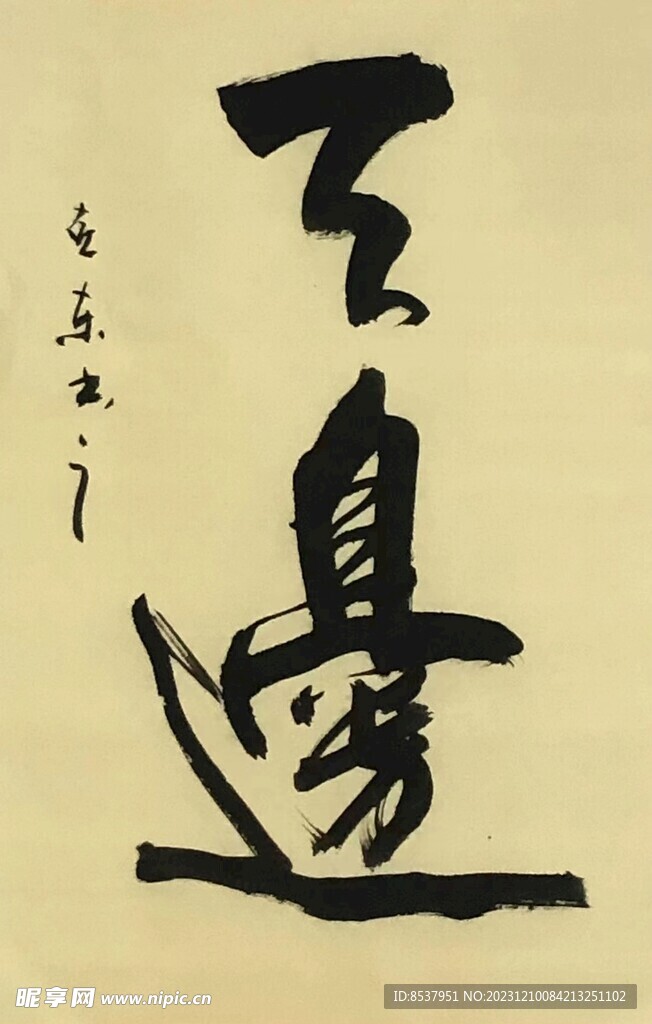 天邊
东书
昵享网 www.nipic.cn
ID:8537951 NO:20231210084213251102